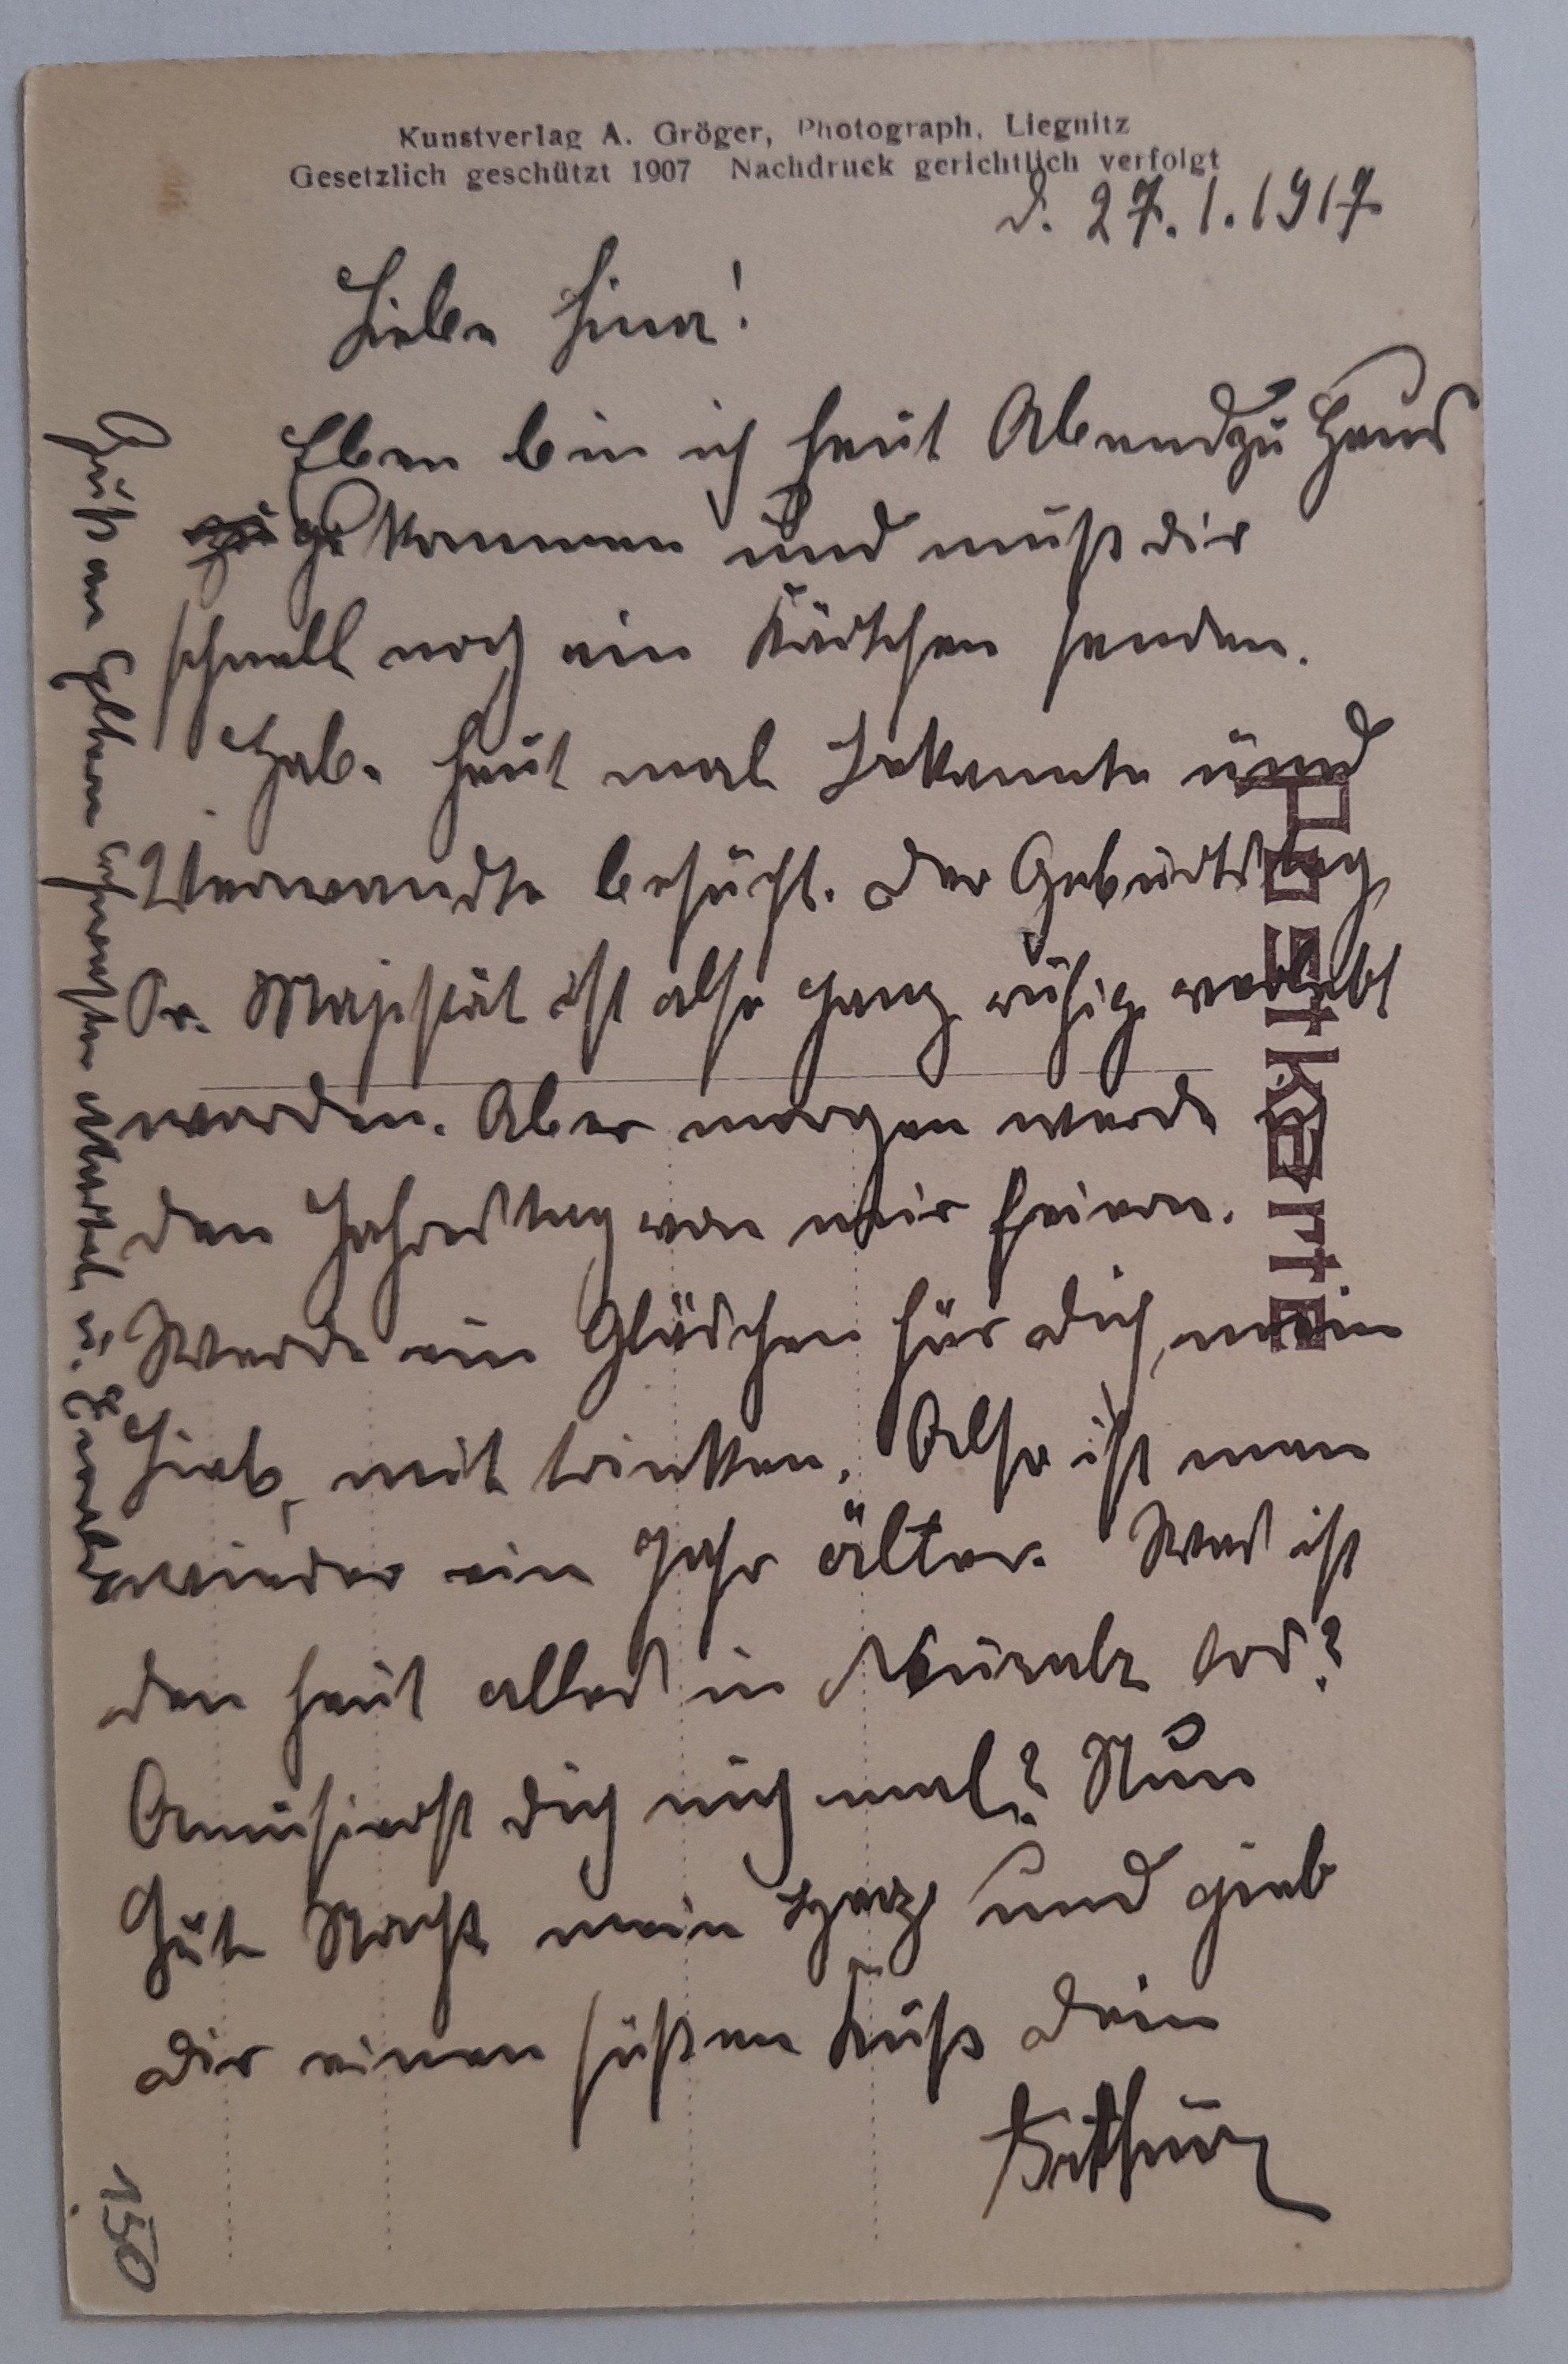 Kunstverlag A. Gröger, Photograph, Liegnitz
Gesetzlich geschützt 1907 Nachdruck gerichtlich verfolgt
d. 27.1.1917
Liebe Lina!
Eben bin ich heut Abend zu Haus
gekommen und muß dir
schnell noch ein Kärtchen senden.
Habe heut mal Bekannte und
Verwandte besucht. Der Geburtstag
Sr. Majestät ist also ganz ruhig verlebt
worden. Aber morgen werde ich
den Jahrestag von mir feiern.
Werde ein Gläschen für dich, mein
Lieb, mit trinken. Also ist man
wieder ein Jahr älter. Was ist
den heut alles in los?
Amüsierst dich auch mal? Nun
Gute Nacht mein Herz und gieb
dir einen süßen Kuß Dein
Arthur
Gruß an Eltern Schwester u.
Postkarte
150